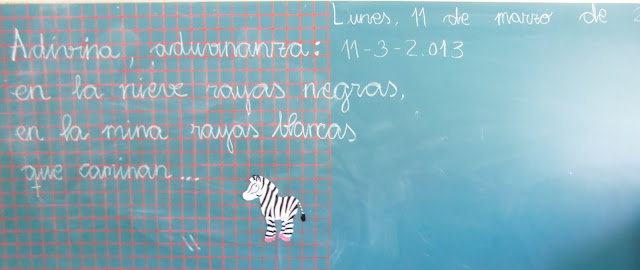 Lunes, 11 de marzo de 2
11-3-2.013
Adivina, adivinanza:
en la nieve rayas negras,
en la mina rayas blancas
que caminan...